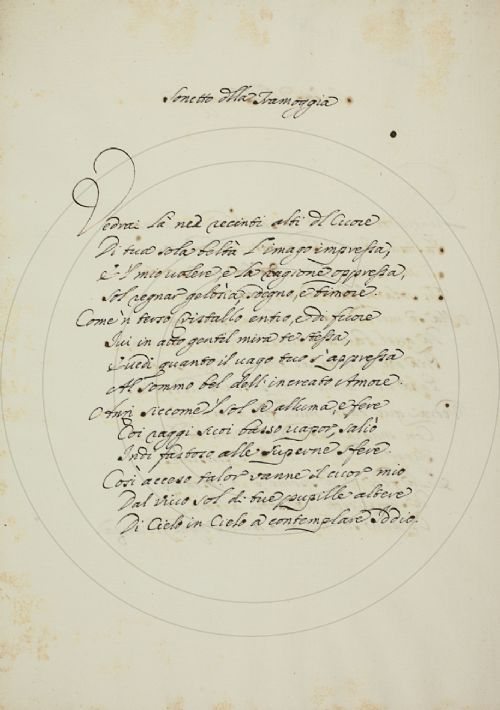 Sonetto della Tramoggia
Vedrai là nei recinti alti del Cuore
Di tua sola beltà l'imago impressa,
E 'l mio volere e la ragione oppressa,
Sol regnar gelosia, sdegno, e timore.
Come 'n terso Cristallo entro, e di fuore
Ivi in atto gentil mira te stessa,
E vedi quanto il vago tuo s'appressa
Al sommo bel dell'increato Amore.
Anzi siccome il sol se alluma, e fere
Coi raggi suoi basso vapor, salio
Indi fastoso alle superne sfere.
Così acceso talor vanne il cuor mio
Dal vivo sol di tue pupille altere
Di Cielo in Cielo a contemplare Iddio.